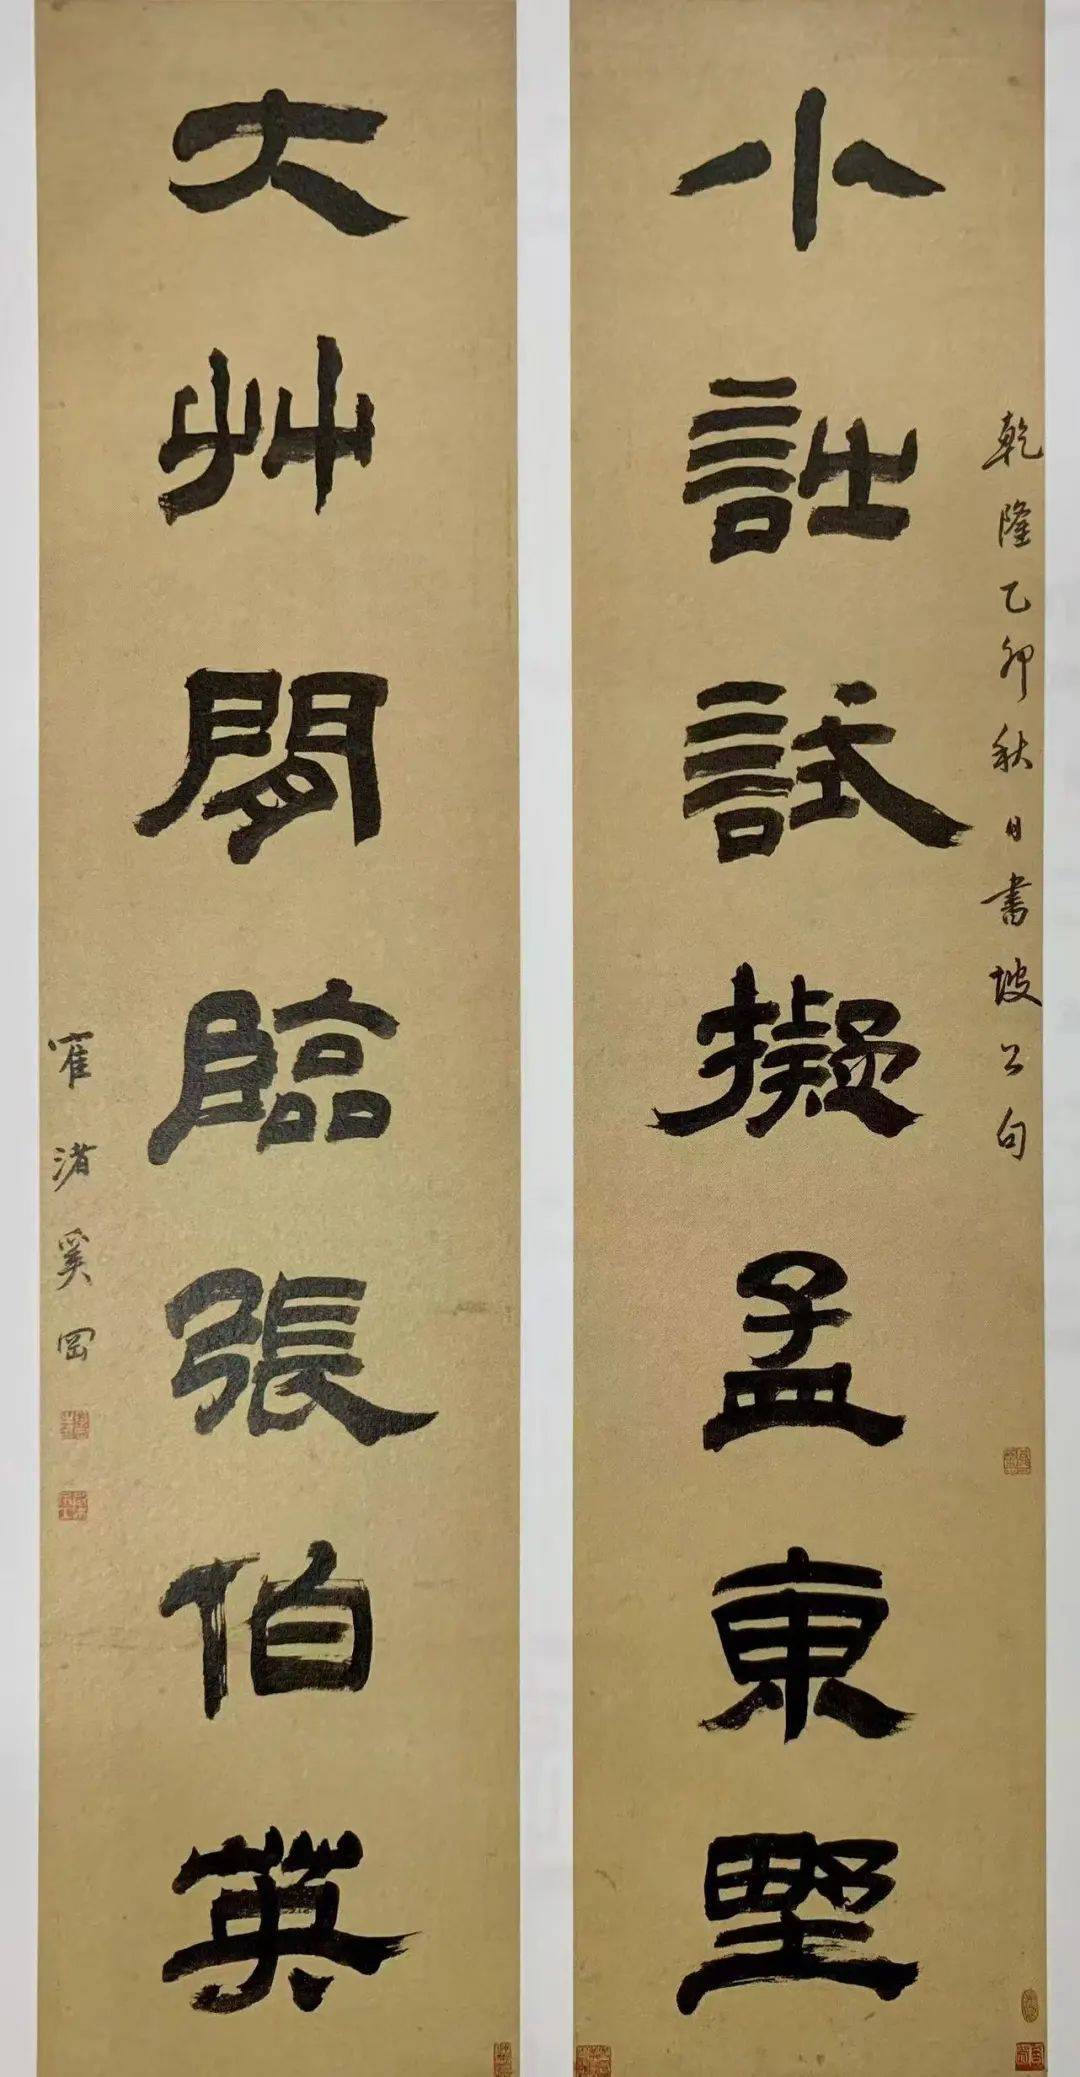 小詩試擬孟東野
乾隆乙卯秋日書坡公句
大艸閒臨張伯英
寉渚奚岡